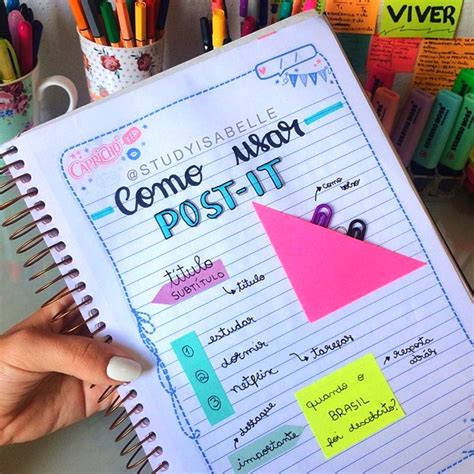 VIVER
CAPRICHO
@STUDYISABELLE
como usar
POST-IT
como bolso
título
SUBTÍTULO
título
1 estudar
2 dormir
3 netflix
tarefas
resposta
atrás
quando o
BRASIL
foi descoberto?
destaque
importante